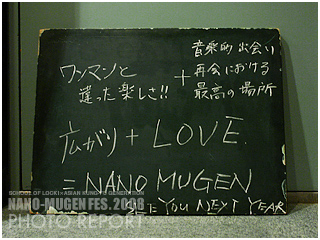 ワンマンと
違った楽しさ!!
+
音楽的出会い
再会における
最高の場所
広がり + LOVE.
= NANO MUGEN
SEE YOU NEXT YEAR
SCHOOL OF LOCK!×ASIAN KUNG-FU GENERATION
NANO-MUGEN FES. 2008
PHOTO REPORT